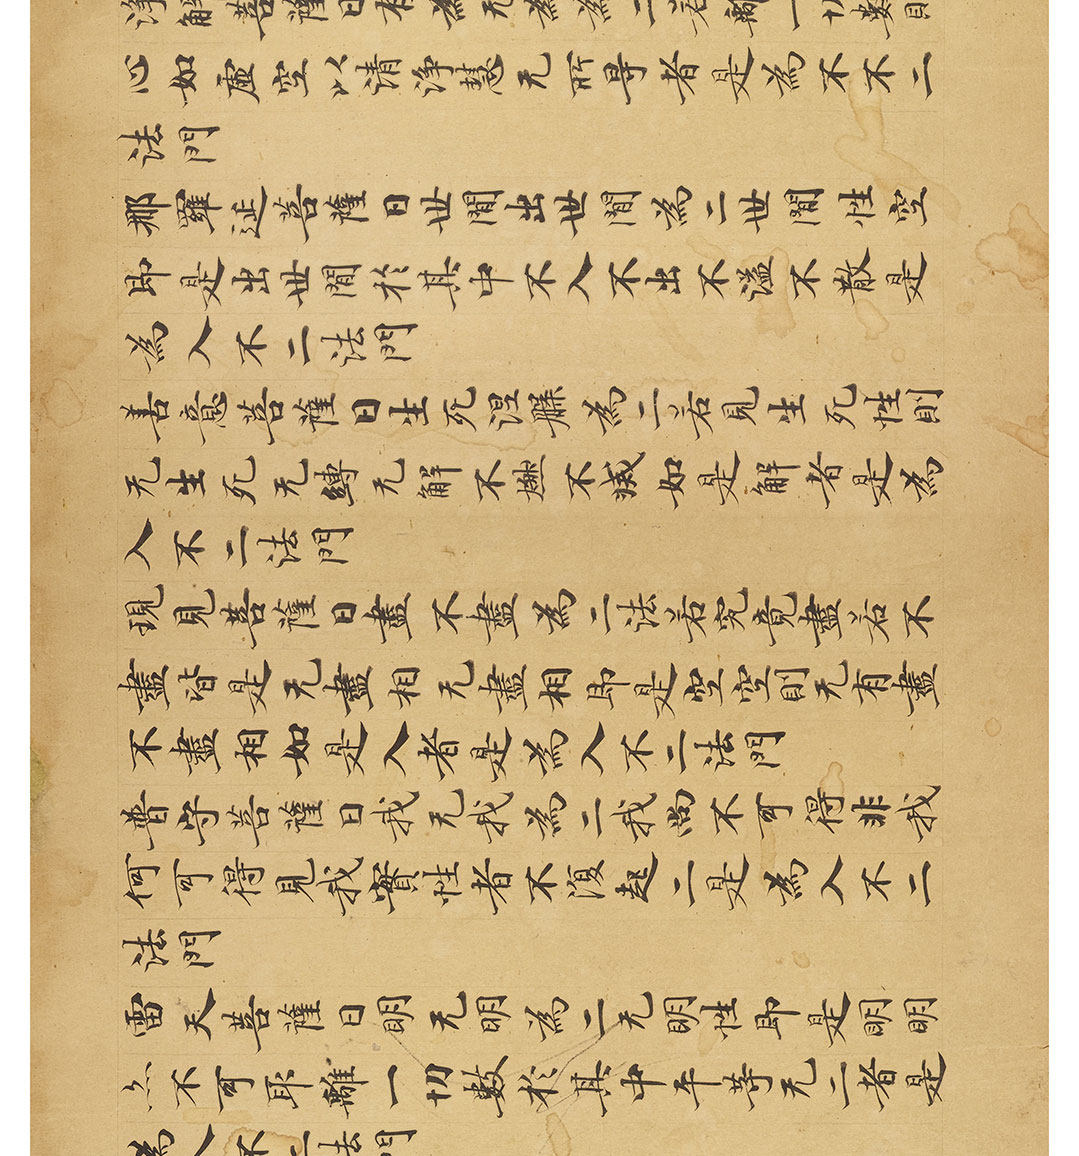 淨解菩薩曰有為无為為二若離一切數則
心如虛空以清淨慧无所导者是為不不二
法門
那羅延菩薩曰世間出世間為二世間性空
即是出世間於其中不入不出不溢不散是
為入不二法門
善意菩薩曰生死涅槃為二若見生死性則
无生死无縛无解不燃不滅如是解者是為
入不二法門
現見菩薩曰盡不盡為二法若究竟盡若不
盡皆是无盡相无盡相即是空空則无有盡
不盡相如是入者是為入不二法門
普守菩薩曰我无我為二我尚不可得非我
何可得見我實性者不復起二是為入不二
法門
雷天菩薩曰明无明為二无明性即是明明
亦不可取離一切數於其中平等无二者是
為入不二法門